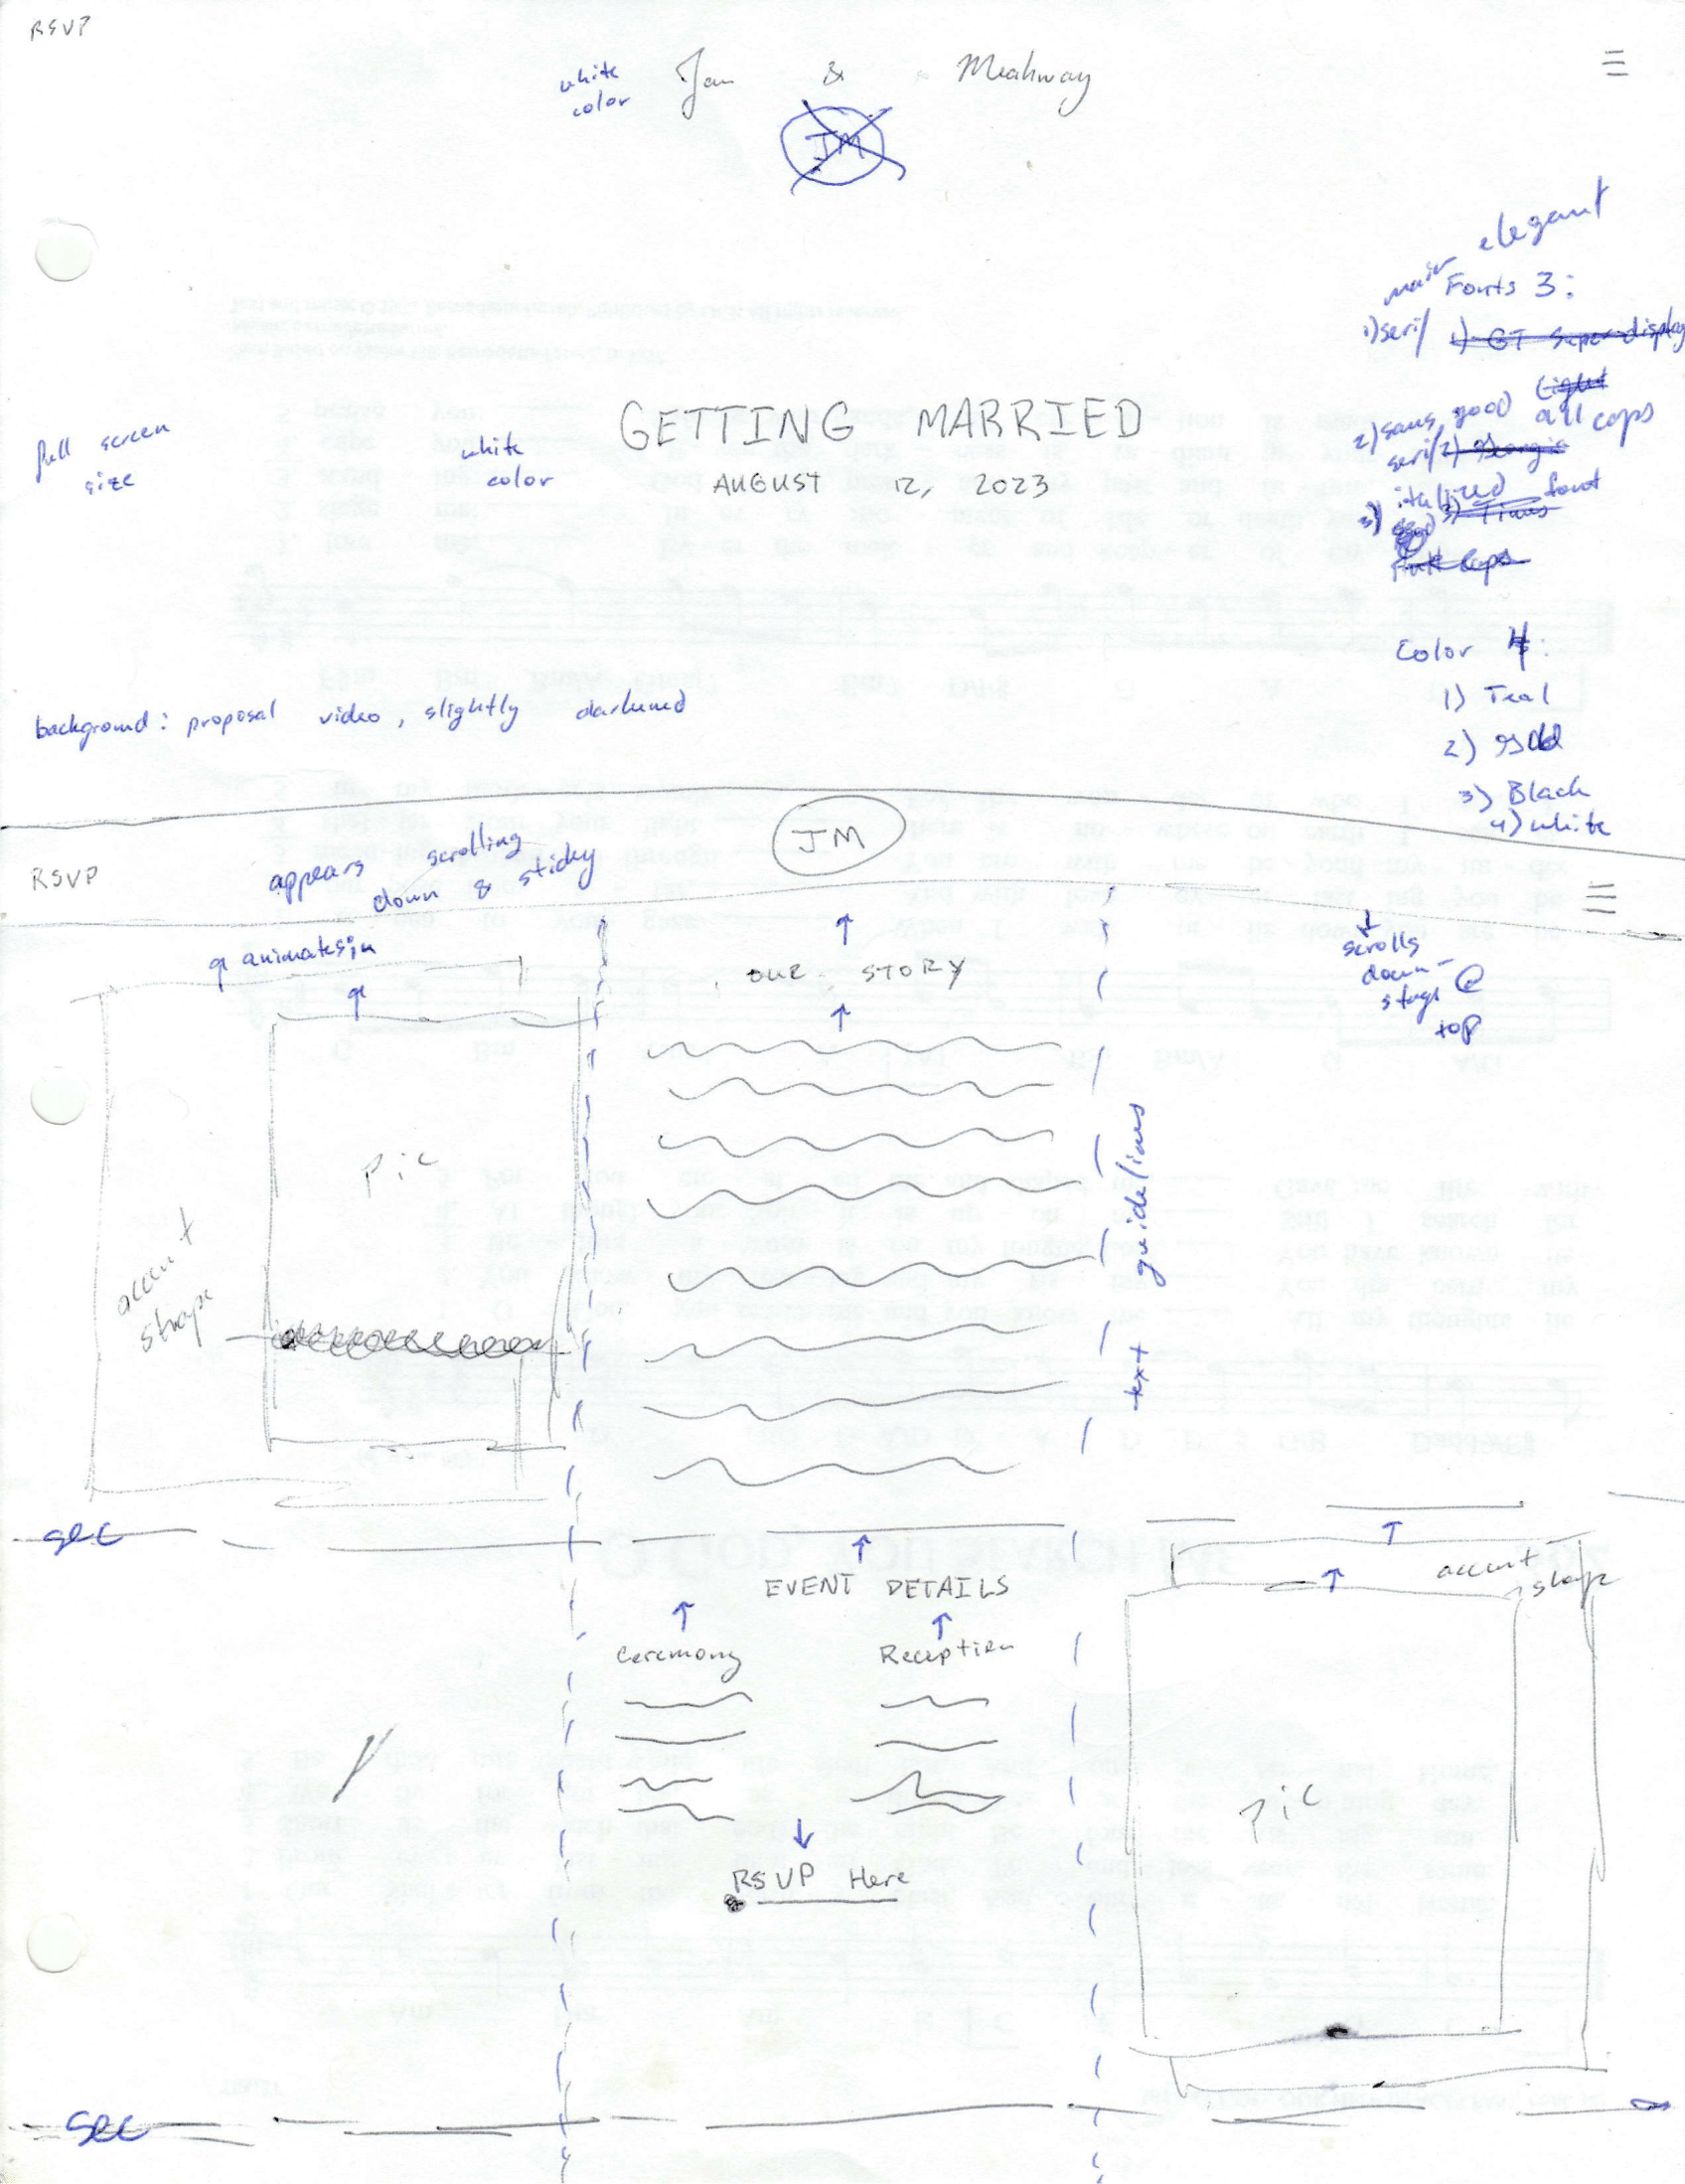 RSVP
white
color
Jan & Meahway
JM
elegant
main Fonts 3:
1) serif
1) GT Super display
Light
2) sans good all caps
serif 2) Georgia
3) italized font
good 3) Times
Color 4:
1) Teal
2) gold
3) Black
4) white
full screen
size
white
color
GETTING MARRIED
AUGUST 12, 2023
background: proposal video, slightly darkened
JM
RSVP
appears scrolling
down & sticky
animates in
OUR STORY
scrolls
down-
stays @
top
pic
accent
shape
text guidelines
sec
EVENT DETAILS
accent
shape
Ceremony
Reception
pic
RSVP Here
sec